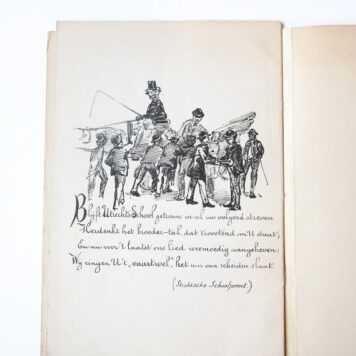 Blijft Utrechts School getrouw in al uw volgend streven
Herdenkt het broeder-tal, dat troostend om U staat,
En nu voor 't laatst ons lied weemoedig aangeheven:
Wij zingen U 't "vaartwel", het uur van scheiden slaat.
(Stichtsche Schoolprent.)